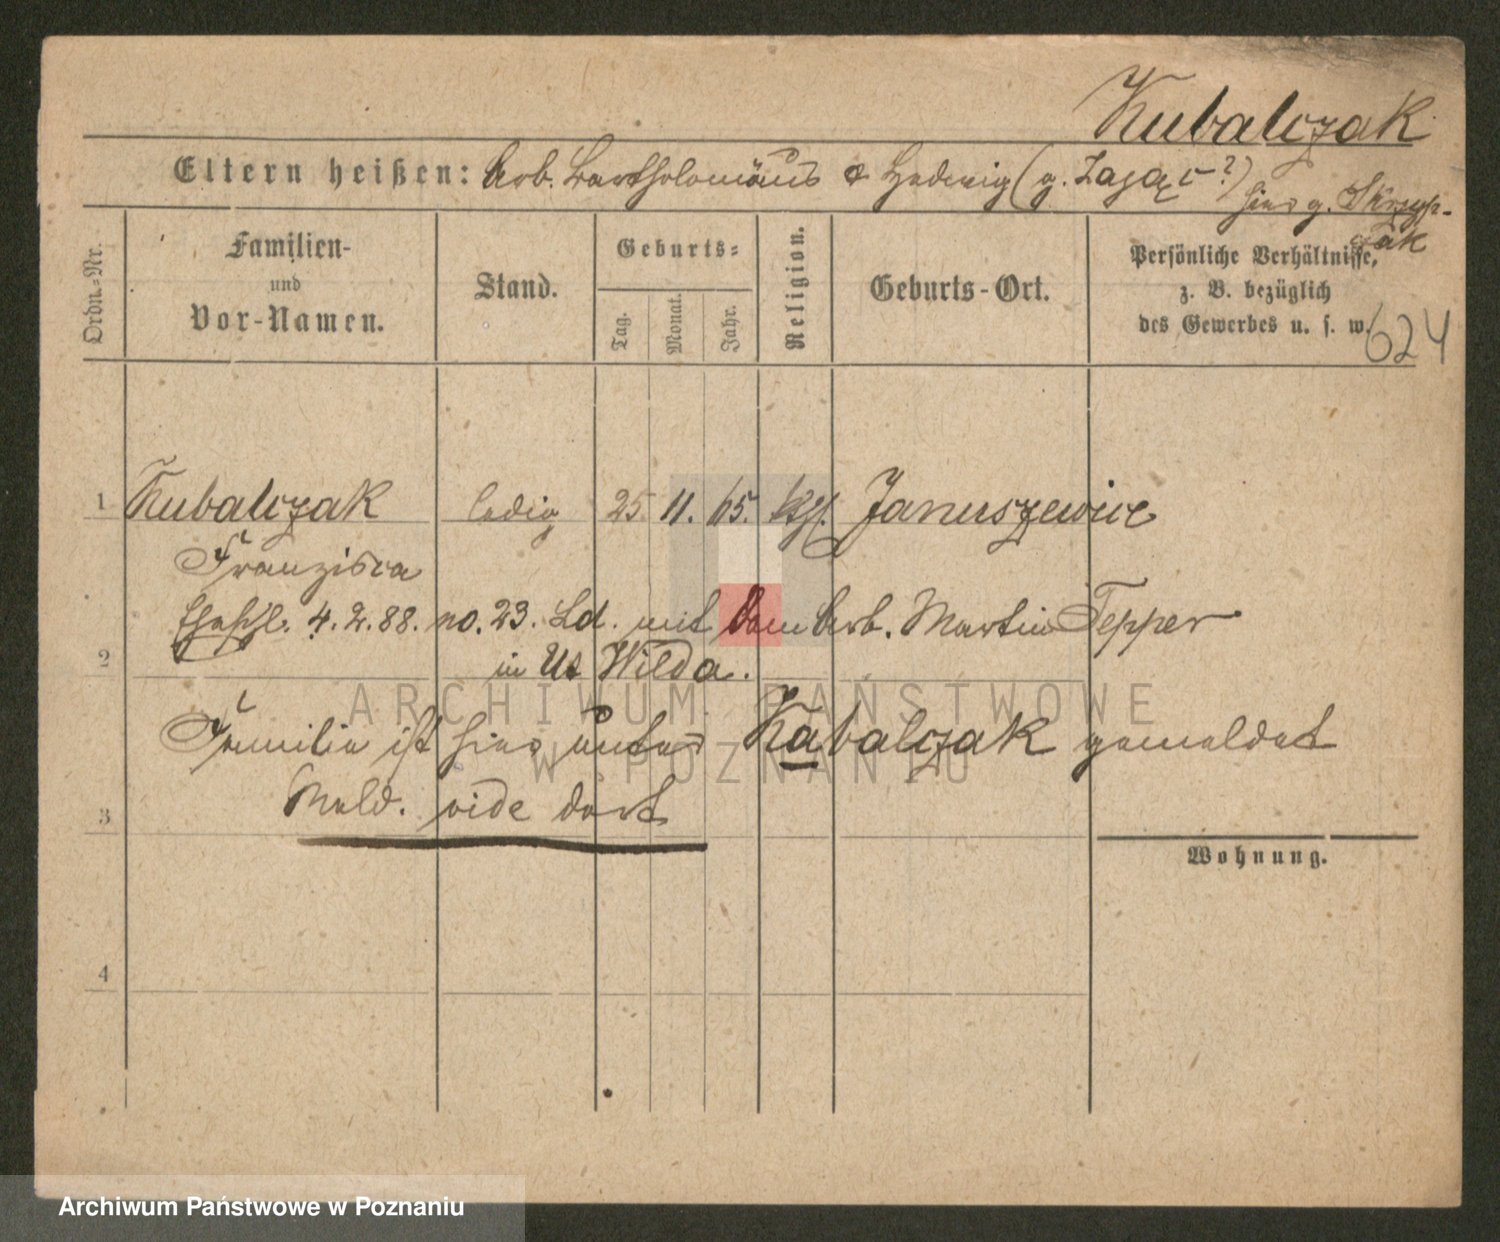 Kubalczak
Eltern heißen: Arb. Bartholomäus & Hedwig (g. Zając?)
hier g. Skrzyp-
czak
Ordn.-Nr.
Familien-
und
Vor-Namen.
Stand.
Geburts-
Tag.
Monat.
Jahr.
Religion.
Geburts-Ort.
Persönliche Verhältnisse,
z. B. bezüglich
des Gewerbes u. s. w.
624
1 Kubalczak ledig 25 11. 65. kth. Januszewice
Franzisca
Ehschl. 4.2.88. no. 23. Ld. mit dem Arb. Martin Tepper
2 in Ut Wilda.
Familie ist hier unter Kabalczak gemeldet
3 Meld. vide dort
Wohnung.
4
ARCHIWUM PAŃSTWOWE
W POZNANIU
Archiwum Państwowe w Poznaniu